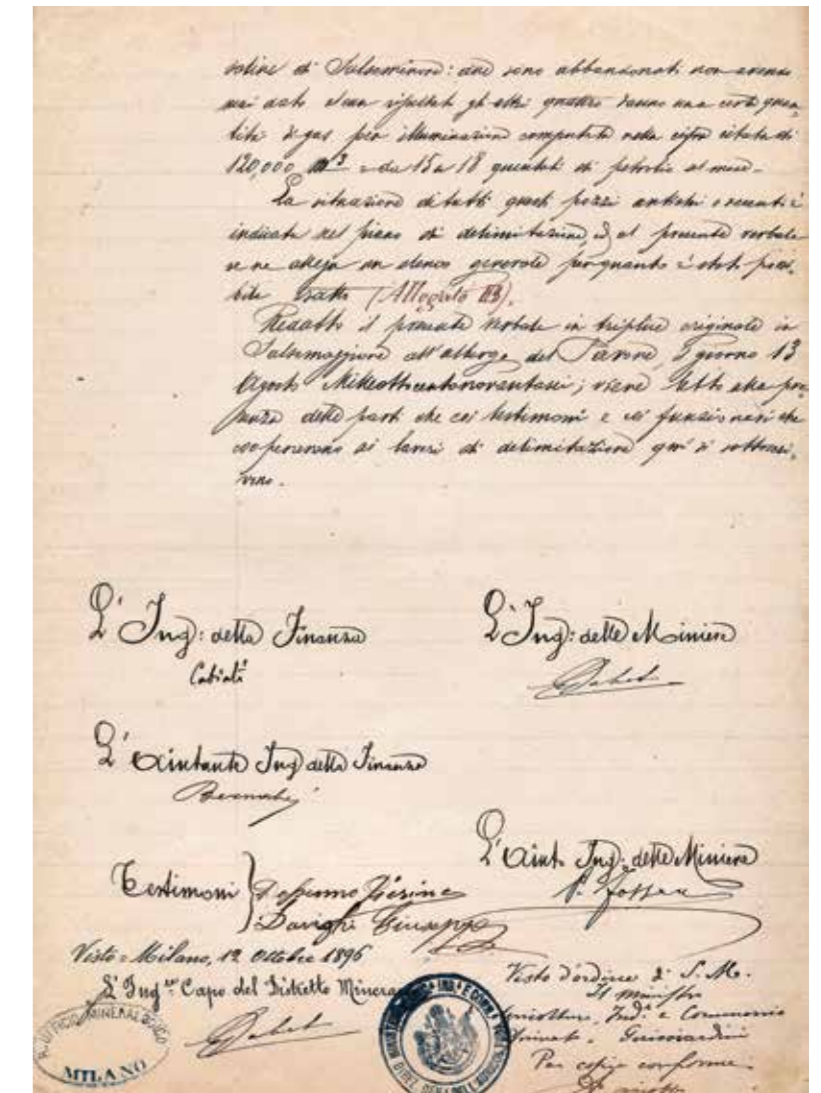 saline di Salsominore: due sono abbandonati non avendo
mai dato alcun risultato gli altri quattro danno una certa quan,
tità di gas per illuminazione computata nella cifra citata di
120,000 m3 e da 15 a 18 quintali di petrolio al mese.
La situazione di tutti questi pozzi antichi e recenti è
indicata nel piano di delimitazione, ed al presente verbale
se ne allega un elenco generale per quanto è stato possi,
bile esatto (Allegato B).
Redatto il presente verbale in triplice originale in
Salsomaggiore all'albergo del Pavone, il giorno 13
Agosto Milleottocentonovantasei; viene letto alla pre
senza delle parti che coi testimoni e coi funzionari che
cooperarono ai lavori di delimitazione qui si sottoscri,
vono.
L'Ing: della Finanza
L'Ing: delle Miniere
Cabiati
L'Aiutante Ing della Finanza
Bernabei
L'Aiut. Ing: delle Miniere
Testimoni
Davighi Giuseppe
Visto = Milano, 12 Ottobre 1896
L'Ing.re Capo del Distretto Minerario
R. UFFICIO MINERALOGICO
MILANO
Visto d'ordine di S. M.
Il ministro
Ind.a e Commercio
Guicciardini
Per copia conforme